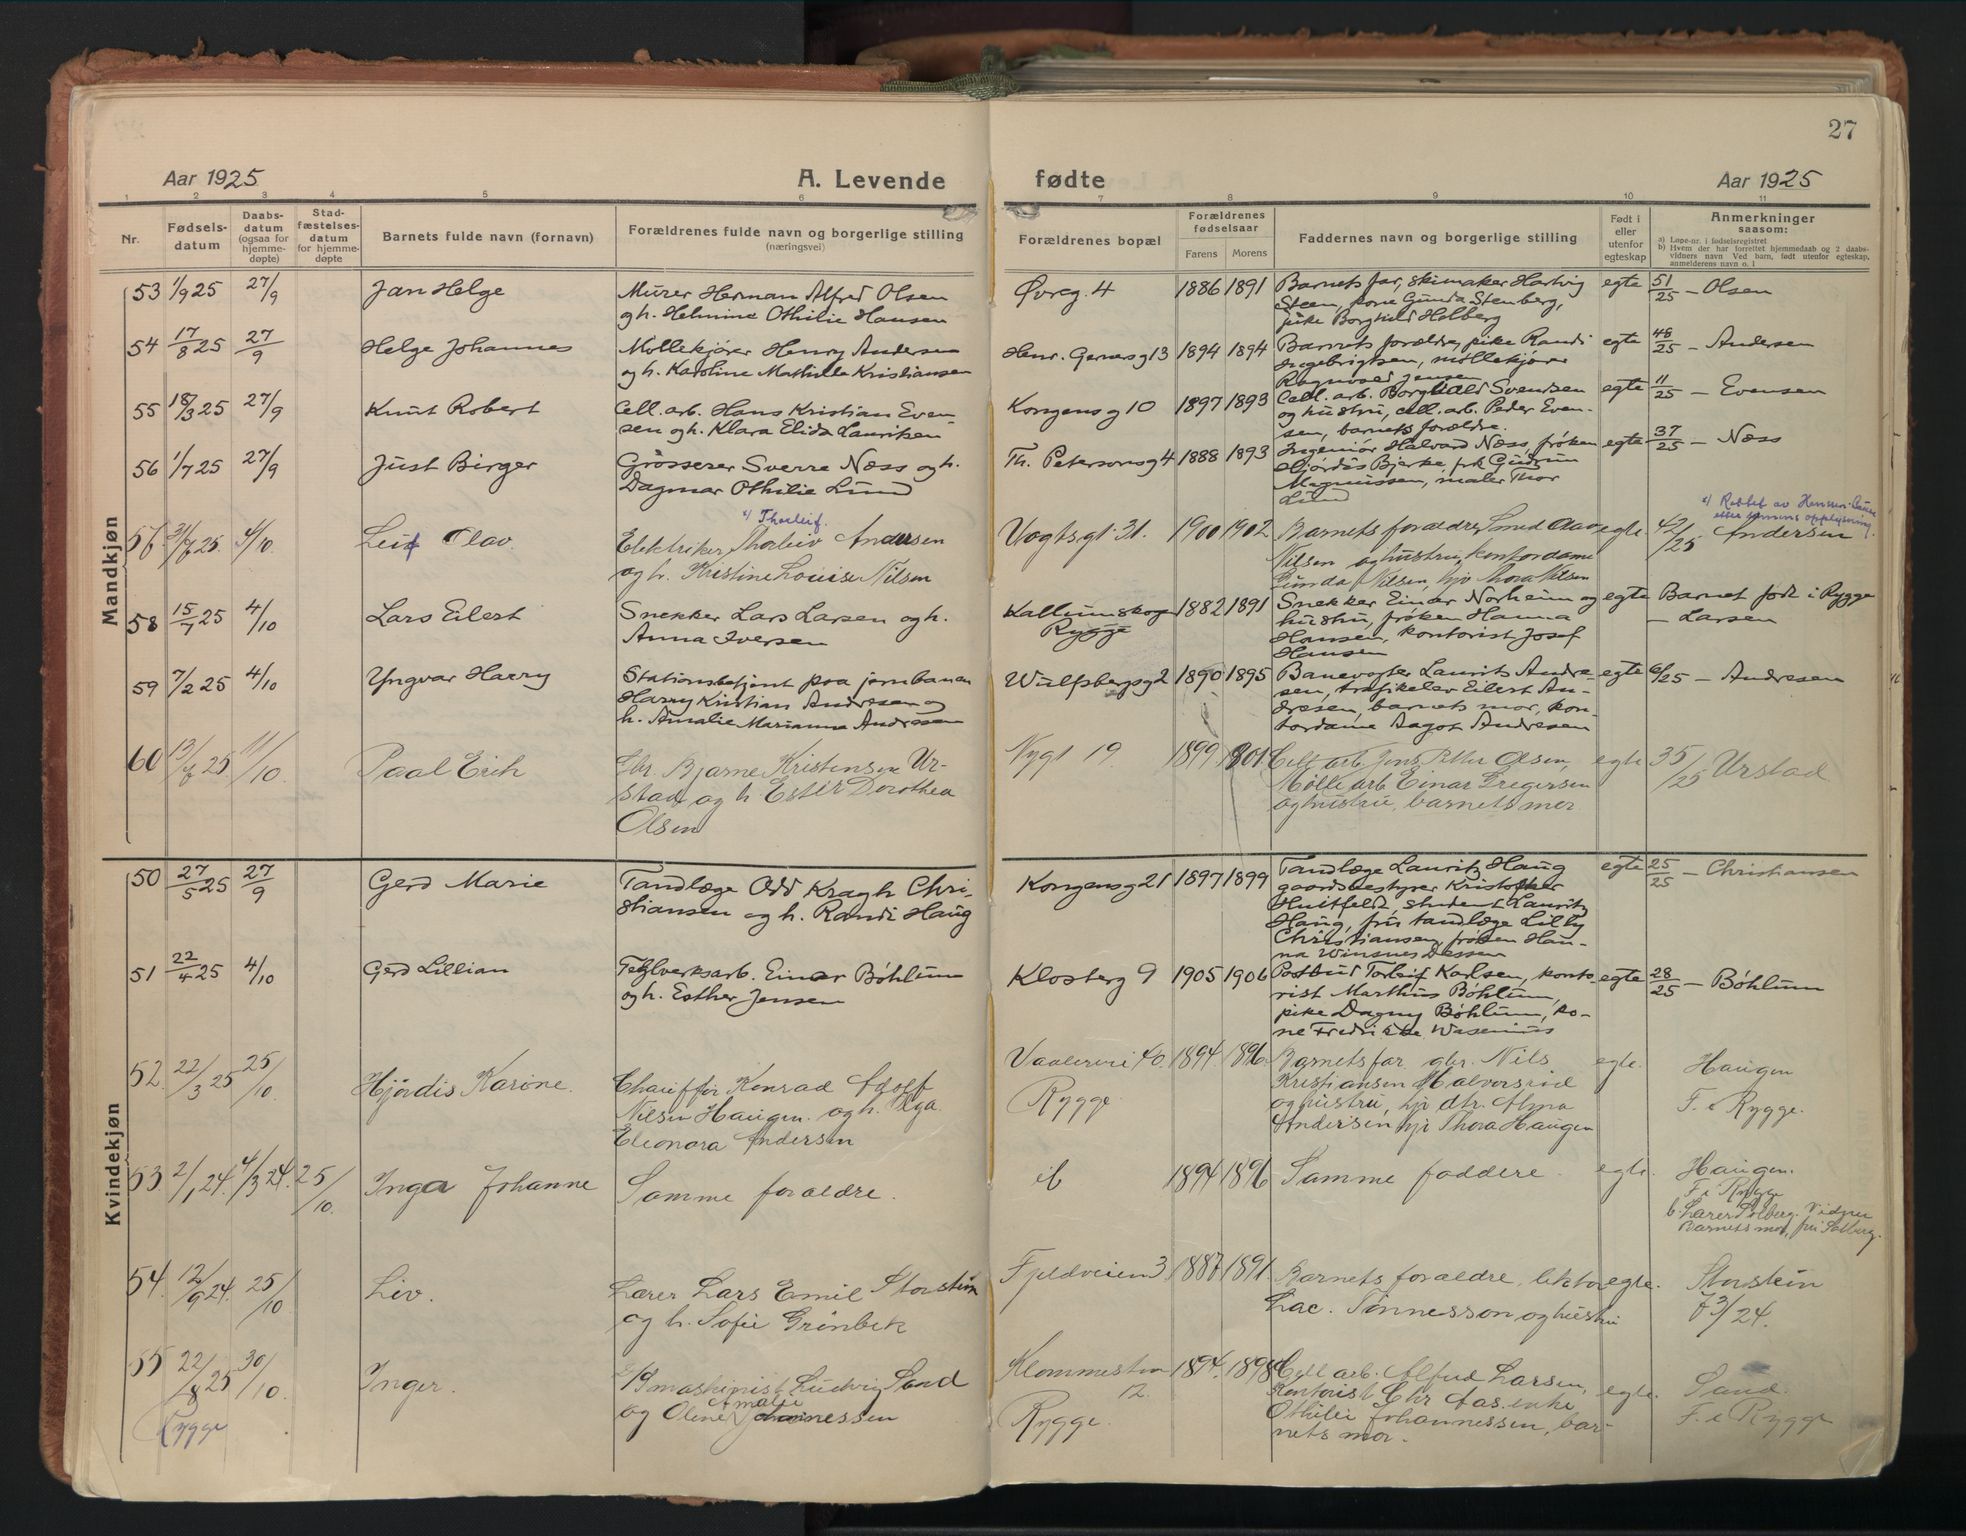 27
Aar 1925
A. Levende
fødte
Aar 1925
1 2 3 4 5 6 7 8 9 10 11
Nr.
Fødsels-
datum
Daabs-
datum
(ogsaa for
hjemme-
døpte)
Stad-
fæstelses-
datum
for hjemme-
døpte
Barnets fulde navn (fornavn)
Forældrenes fulde navn og borgerlige stilling
(næringsvei)
Forældrenes bopæl
Forældrenes
fødselsaar
Farens Morens
Faddernes navn og borgerlige stilling
Født i
eller
utenfor
egteskap
Anmerkninger
saasom:
a) Løpe-nr. i fødselsregistret
b) Hvem der har forrettet hjemmedaab og 2 daabs-
vidners navn Ved barn, født utenfor egteskap,
anmelderens navn o. l
Mandkjøn
53 1/9 25 27/9 Jan Helge
Murer Herman Alfred Olsen
og h. Helmine Othilie Hansen
Øvreg. 4 1886 1891
Barnets far, skimaker Hartvig
Steen, kone Gunda Stenberg,
pike Borghild Holberg
egte 51/25 – Olsen
54 17/8 25 27/9 Helge Johannes
Møllekjører Henry Andersen
og h. Karoline Mathilde Kristiansen
Henr. Gernesg 13 1894 1894
Barnets forældre, pike Randi
Ingebrigtsen, møllekjører
Ragnvald Jensen
egte 48/25 – Andersen
55 18/3 25 27/9 Knut Robert
Cell. arb. Hans Kristian Even-
sen og h. Klara Elida Lauritsen
Kongensg 10 1897 1893
Cell. arb. Borghald Svendsen
og hustru, cell. arb. Peder Even-
sen, barnets forældre.
egte 11/25 – Evensen
56 1/7 25 27/9 Just Birger
Grosserer Sverre Næss og h.
Dagmar Othilie Lund
Th. Petersonsg 4 1888 1893
Ingeniør Halvard Næss, frøken
Hjørdis Bjerke, frk Gudrun
Magnussen, maler Thor
Lund
egte 37/25 – Næss
57 31/7 25 4/10 Leif Olav
x) Thorleif.
Elektriker Thorleiv Andersen
og h. Kristine Louise Nilsen
Vogtsgt 31. 1900 1902
Barnets forældre, Smed Olav
Nilsen og hustru, kontordame
Gunda Nilsen, hjv Thora Nilsen
egte. 42/25 Andersen
x) Rettet av
efter opplysning
58 15/7 25 4/10 Lars Eilert
Snekker Lars Larsen og h.
Anna Iversen
Kallumskogen
Rygge
1882 1891
Snekker Einar Norheim og
hustru, frøken Hanna
Hansen, kontorist Josef
Hansen
egte Barnet født i Rygge
– Larsen
59 7/2 25 4/10 Yngvar Harry
Stationsbetjent paa jernbanen
Harry Kristian Andresen og
h. Amalie Marianna Andresen
Wulfsbergsg 2 1890 1895
Banevogter Laurits Andre-
sen, trafikelev Eilert An-
dresen, barnets mor, kon-
tordame Aagot Andresen
egte 6/25 – Andresen
60 13/7 25. 11/10. Paal Erik
Gbr. Bjarne Kristensen Ur-
stad og h Ester Dorothea
Olsen
Nygt 19. 1899 1901.
Cell arb Jens Petter Olsen,
Mølle arb Einar Gregersen
og hustru, barnets mor
egte 35/25 Urstad
Kvindekjøn
50 27/5 25 27/9 Gerd Marie
Tandlæge Odd Kragh Chri-
stiansen og h. Randi Haug
Kongensg 21 1897 1899
Tandlæge Lauritz Haug
gaardsbestyrer Kristoffer
Huitfeldt, student Lauritz
Haug, fru tandlæge Lilly
Christiansen, frøken Han-
na Winsnes Dessen
egte 25/25 – Christiansen
51 22/4 25 4/10 Gerd Lillian
Teglverksarb. Einar Bøhlum
og h. Esther Jensen
Klosterg 9 1905 1906
Postbud Torleif Karlsen, konto-
rist Marthus Bøhlum,
pike Dagny Bøhlum, ko-
ne Fredrikke Wasenius
egte 28/25 – Bøhlum
52. 22/3 25 25/10. Hjørdis Karine.
Chauffør Konrad Adolf
Nilsen Haugen. og h. Olga
Eleonora Andersen
Vaalerveien 40.
Rygge.
1894. 1896.
Barnets far gbr. Nils
Kristiansen Halvorsrød
og hustru, hjv dtr. Alma
Andersen hjv Thora Haugen
egte. Haugen
F. i Rygge.
53. 2/1 24. 4/3 24. 25/10. Inga Johanne
Samme forældre.
ib 1894 1896
Samme faddere. egte.
Haugen.
F i Rygge
b. Lærer Solberg. Vidner
Barnets mor, fru Solberg.
54. 12/9 24. 25/10 Liv.
Lærer Lars Emil Storstein
og h. Sofie Grønbek
Fjeldveien 3 1887 1891.
Barnets forældre, lektor
Lac. Tønnesson og hustru
egte. Storstein
73/24.
55 22/8 25 30/10. Inger.
Rygge
maskinist Ludvig Sand
Amalie
og Oline Johannessen
12.
Rygge.
1894. 1898
Cell arb. Alfred Larsen,
Kontorist Chr Aas, enke
Othilie Johannessen, bar-
nets mor.
egte. Sand.
F. i Rygge